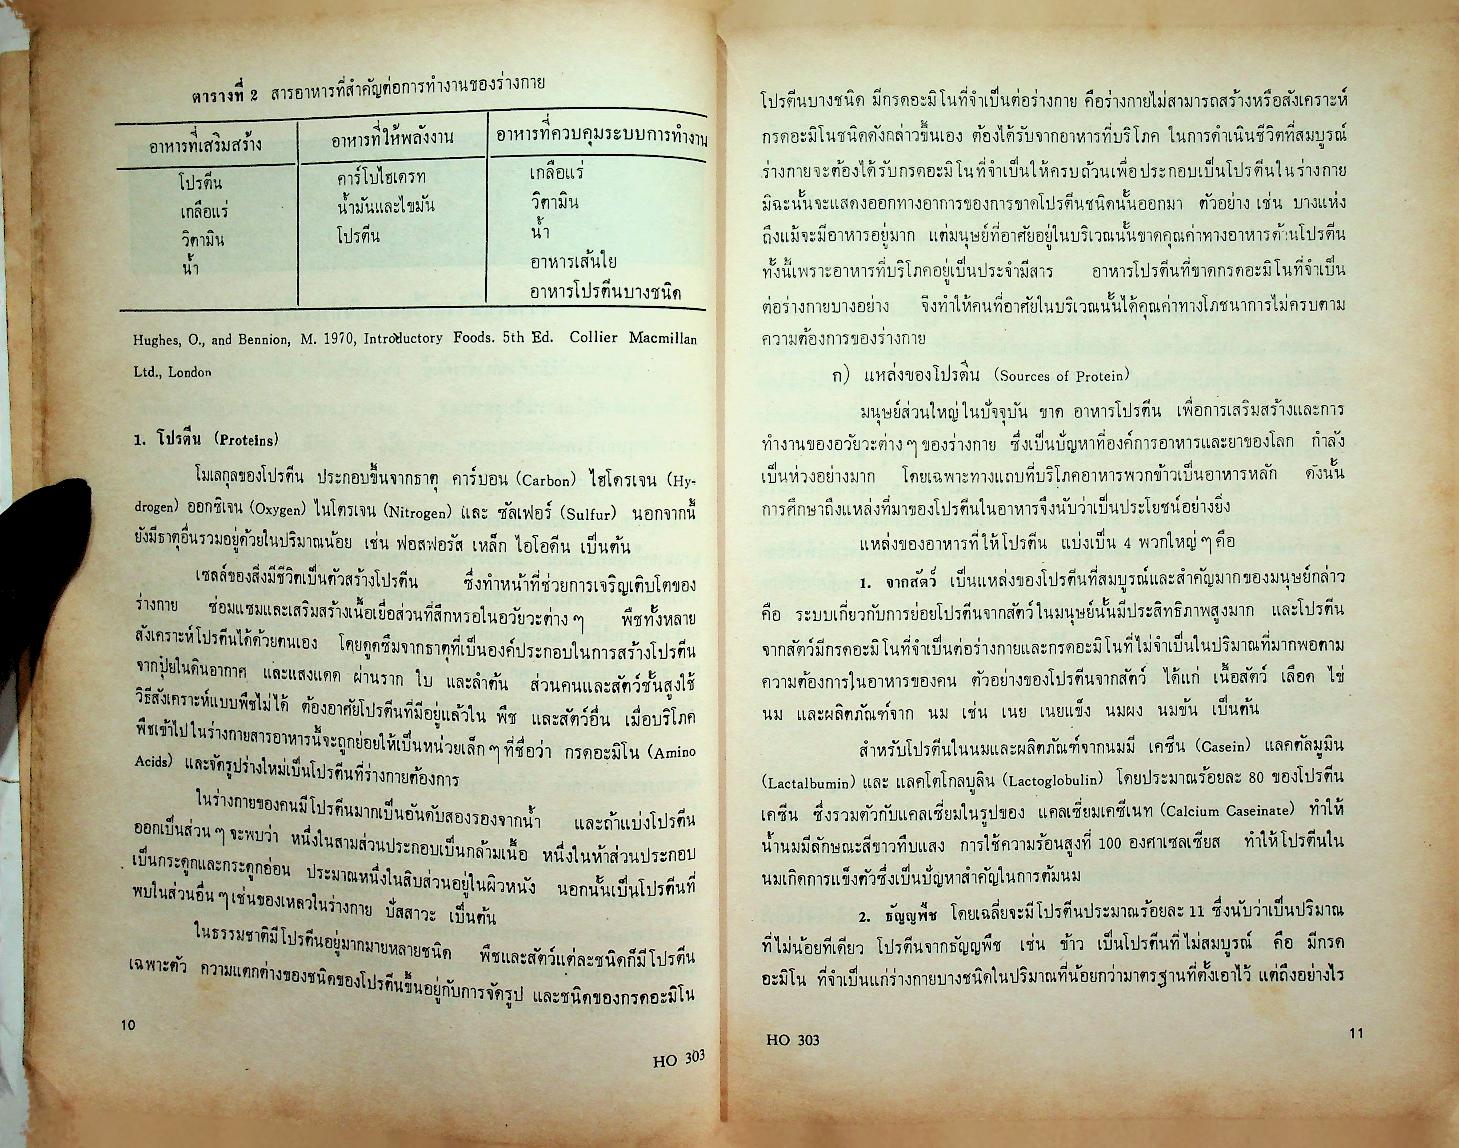 ตารางที่ 2 สารอาหารที่สำคัญต่อการทำงานของร่างกาย
อาหารที่เสริมสร้าง อาหารที่ให้พลังงาน อาหารที่ควบคุมระบบการทำงาน
โปรตีน คาร์โบไฮเดรท เกลือแร่
เกลือแร่ น้ำมันและไขมัน วิตามิน
วิตามิน โปรตีน น้ำ
น้ำ อาหารเส้นใย
อาหารโปรตีนบางชนิด
Hughes, O., and Bennion, M. 1970, Introductory Foods. 5th Ed. Collier Macmillan
Ltd., London
1. โปรตีน (Proteins)
โมเลกุลของโปรตีน ประกอบขึ้นจากธาตุ คาร์บอน (Carbon) ไฮโดรเจน (Hy-
drogen) ออกซิเจน (Oxygen) ไนโตรเจน (Nitrogen) และ ซัลเฟอร์ (Sulfur) นอกจากนี้
ยังมีธาตุอื่นรวมอยู่ด้วยในปริมาณน้อย เช่น ฟอสฟอรัส เหล็ก ไอโอดีน เป็นต้น
เซลล์ของสิ่งมีชีวิตเป็นตัวสร้างโปรตีน ซึ่งทำหน้าที่ช่วยการเจริญเติบโตของ
ร่างกาย ซ่อมแซมและเสริมสร้างเนื้อเยื่อส่วนที่สึกหรอในอวัยวะต่าง ๆ พืชทั้งหลาย
สังเคราะห์โปรตีนได้ด้วยตนเอง โดยดูดซึมจากธาตุที่เป็นองค์ประกอบในการสร้างโปรตีน
จากปุ๋ยในดินอากาศ และแสงแดด ผ่านราก ใบ และลำต้น ส่วนคนและสัตว์ชั้นสูงใช้
วิธีสังเคราะห์แบบพืชไม่ได้ ต้องอาศัยโปรตีนที่มีอยู่แล้วใน พืช และสัตว์อื่น เมื่อบริโภค
พืชเข้าไปในร่างกายสารอาหารนี้จะถูกย่อยให้เป็นหน่วยเล็ก ๆ ที่ชื่อว่า กรดอะมิโน (Amino
Acids) และจัดรูปร่างใหม่เป็นโปรตีนที่ร่างกายต้องการ
ในร่างกายของคนมีโปรตีนมากเป็นอันดับสองรองจากน้ำ และถ้าแบ่งโปรตีน
ออกเป็นส่วน ๆ จะพบว่า หนึ่งในสามส่วนประกอบเป็นกล้ามเนื้อ หนึ่งในห้าส่วนประกอบ
เป็นกระดูกและกระดูกอ่อน ประมาณหนึ่งในสิบส่วนอยู่ในผิวหนัง นอกนั้นเป็นโปรตีนที่
พบในส่วนอื่น ๆ เช่นของเหลวในร่างกาย ปัสสาวะ เป็นต้น
ในธรรมชาติมีโปรตีนอยู่มากมายหลายชนิด พืชและสัตว์แต่ละชนิดก็มีโปรตีน
เฉพาะตัว ความแตกต่างของชนิดของโปรตีนขึ้นอยู่กับการจัดรูป และชนิดของกรดอะมิโน
10
HO 303
โปรตีนบางชนิด มีกรดอะมิโนที่จำเป็นต่อร่างกาย คือร่างกายไม่สามารถสร้างหรือสังเคราะห์
กรดอะมิโนชนิดดังกล่าวขึ้นเอง ต้องได้รับจากอาหารที่บริโภค ในการดำเนินชีวิตที่สมบูรณ์
ร่างกายจะต้องได้รับกรดอะมิโนที่จำเป็นให้ครบถ้วนเพื่อประกอบเป็นโปรตีนในร่างกาย
มิฉะนั้นจะแสดงออกทางอาการของการขาดโปรตีนชนิดนั้นออกมา ตัวอย่าง เช่น บางแห่ง
ถึงแม้จะมีอาหารอยู่มาก แต่มนุษย์ที่อาศัยอยู่ในบริเวณนั้นขาดคุณค่าทางอาหารด้านโปรตีน
ทั้งนี้เพราะอาหารที่บริโภคอยู่เป็นประจำมีสาร อาหารโปรตีนที่ขาดกรดอะมิโนที่จำเป็น
ต่อร่างกายบางอย่าง จึงทำให้คนที่อาศัยในบริเวณนั้นได้คุณค่าทางโภชนาการไม่ครบตาม
ความต้องการของร่างกาย
ก) แหล่งของโปรตีน (Sources of Protein)
มนุษย์ส่วนใหญ่ในปัจจุบัน ขาด อาหารโปรตีน เพื่อการเสริมสร้างและการ
ทำงานของอวัยวะต่าง ๆ ของร่างกาย ซึ่งเป็นปัญหาที่องค์การอาหารและยาของโลก กำลัง
เป็นห่วงอย่างมาก โดยเฉพาะทางแถบที่บริโภคอาหารพวกข้าวเป็นอาหารหลัก ดังนั้น
การศึกษาถึงแหล่งที่มาของโปรตีนในอาหารจึงนับว่าเป็นประโยชน์อย่างยิ่ง
แหล่งของอาหารที่ให้โปรตีน แบ่งเป็น 4 พวกใหญ่ ๆ คือ
1. จากสัตว์ เป็นแหล่งของโปรตีนที่สมบูรณ์และสำคัญมากของมนุษย์กล่าว
คือ ระบบเกี่ยวกับการย่อยโปรตีนจากสัตว์ในมนุษย์นั้นมีประสิทธิภาพสูงมาก และโปรตีน
จากสัตว์มีกรดอะมิโนที่จำเป็นต่อร่างกายและกรดอะมิโนที่ไม่จำเป็นในปริมาณที่มากพอตาม
ความต้องการในอาหารของคน ตัวอย่างของโปรตีนจากสัตว์ ได้แก่ เนื้อสัตว์ เลือด ไข่
นม และผลิตภัณฑ์จาก นม เช่น เนย เนยแข็ง นมผง นมข้น เป็นต้น
สำหรับโปรตีนในนมและผลิตภัณฑ์จากนมมี เคซีน (Casein) แลคตัลมูมิน
(Lactalbumin) และ แลคโตโกลบูลิน (Lactoglobulin) โดยประมาณร้อยละ 80 ของโปรตีน
เคซีน ซึ่งรวมตัวกับแคลเซี่ยมในรูปของ แคลเซี่ยมเคซีเนท (Calcium Caseinate) ทำให้
น้ำนมมีลักษณะสีขาวทึบแสง การใช้ความร้อนสูงที่ 100 องศาเซลเซียส ทำให้โปรตีนใน
นมเกิดการแข็งตัวซึ่งเป็นปัญหาสำคัญในการต้มนม
2. ธัญญพืช โดยเฉลี่ยจะมีโปรตีนประมาณร้อยละ 11 ซึ่งนับว่าเป็นปริมาณ
ที่ไม่น้อยทีเดียว โปรตีนจากธัญญพืช เช่น ข้าว เป็นโปรตีนที่ไม่สมบูรณ์ คือ มีกรด
อะมิโน ที่จำเป็นแก่ร่างกายบางชนิดในปริมาณที่น้อยกว่ามาตรฐานที่ตั้งเอาไว้ แต่ถึงอย่างไร
HO 303
11